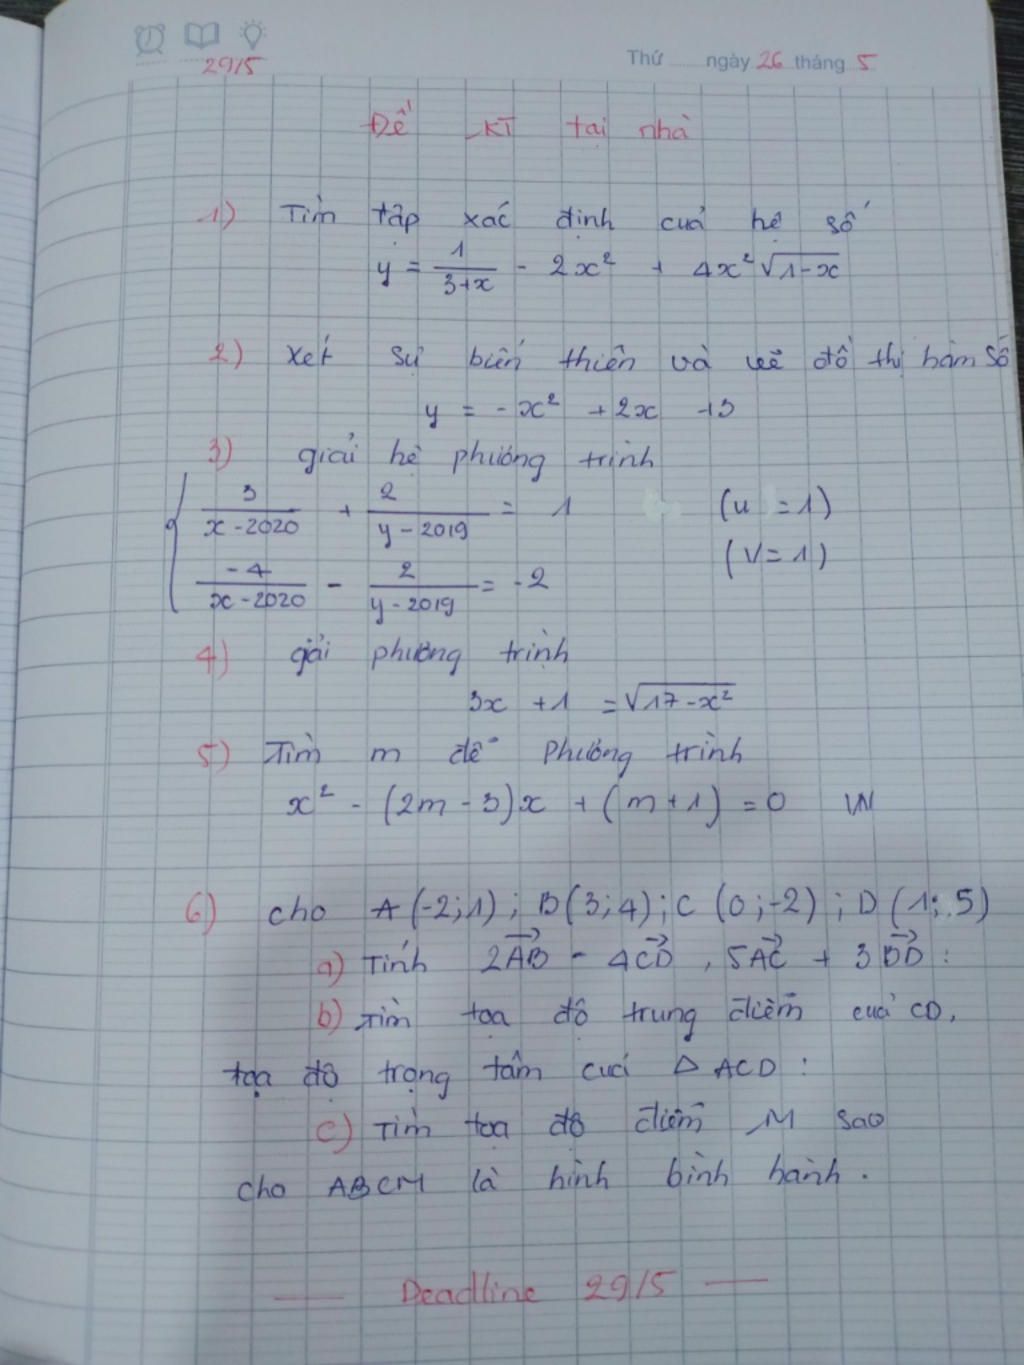 29/5
Thứ ngày 26 tháng 5
Đề KT tại nhà
1) Tìm tập xác định của hệ số
y = 1/(3+x) - 2x² + 4x²√(1-x)
2) Xét sự biến thiên và vẽ đồ thị hàm số
y = -x² + 2x + 3
3) giải hệ phương trình
3/(x-2020) + 2/(y-2019) = 1 (u = 1)
(V = 1)
-4/(x-2020) - 2/(y-2019) = -2
4) giải phương trình
3x + 1 = √(17-x²)
5) Tìm m để phương trình
x² - (2m-3)x + (m+1) = 0 VN
6) cho A(-2;1); B(3;4); C(0;-2); D(1;5)
a) Tính 2AB→ - 4CD→, 5AC→ + 3BD→:
b) Tìm tọa độ trung điểm của CD,
tọa độ trọng tâm của Δ ACD:
c) Tìm tọa độ điểm M sao
cho ABCM là hình bình hành.
— Deadline 29/5 —